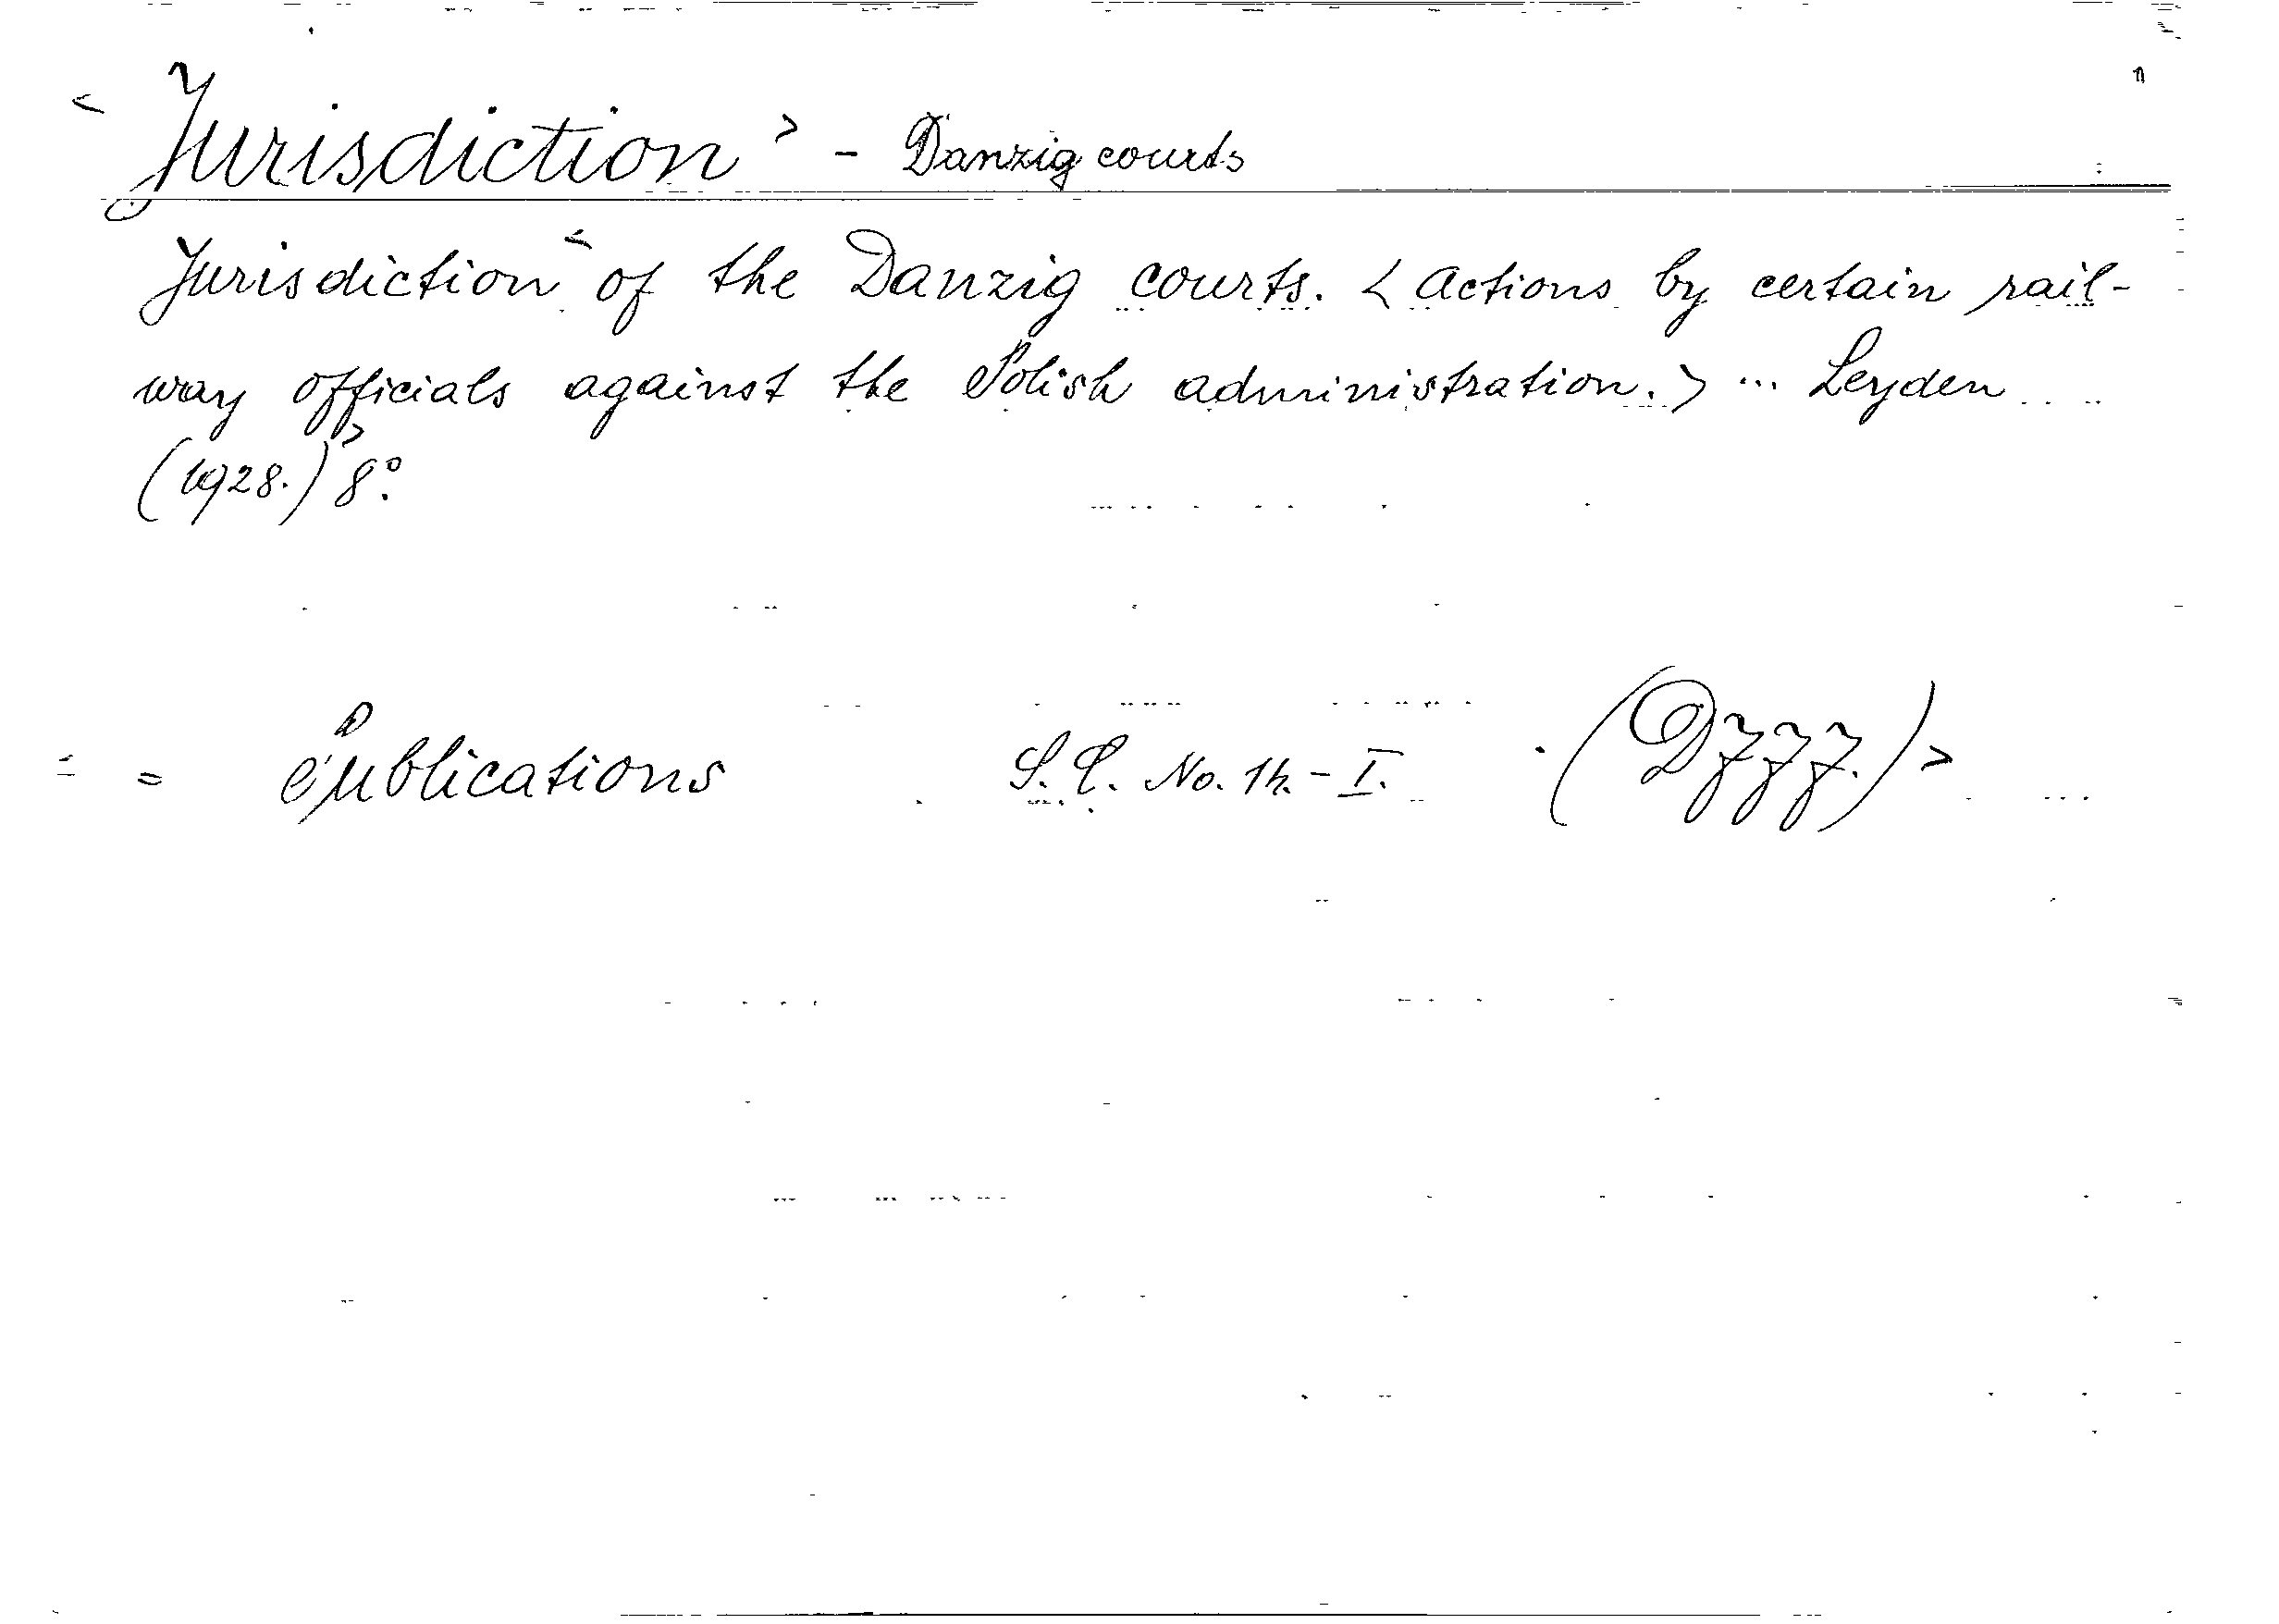 < Jurisdiction > - Danzig courts
Jurisdiction < of the Danzig courts. < Actions by certain rail-
way officials against the Polish administration. > ... Leyden
(1928.) > 8°.
= Publications S. C. No. 14. - I. (DJJJ.) >